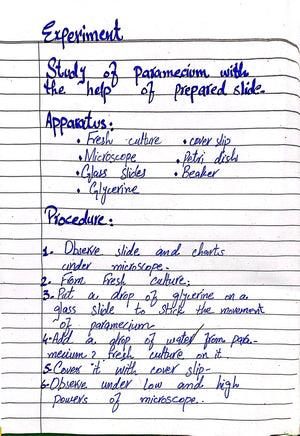 Experiment
Study of paramecium with
the help of prepared slide.
Apparatus:
• Fresh culture • cover slip
• Microscope • Petri dish
• Glass Slides • Beaker
• Glycerine
Procedure:
1. Observe slide and charts
under microscope.
2. From Fresh culture:
3. Put a drop of glycerine on a
glass slide to stick the movement
of paramecium
4. Add a drop of water from para-
mecium? fresh culture on it.
5. Cover it with cover slip-
6. Observe under low and high
powers of microscope.